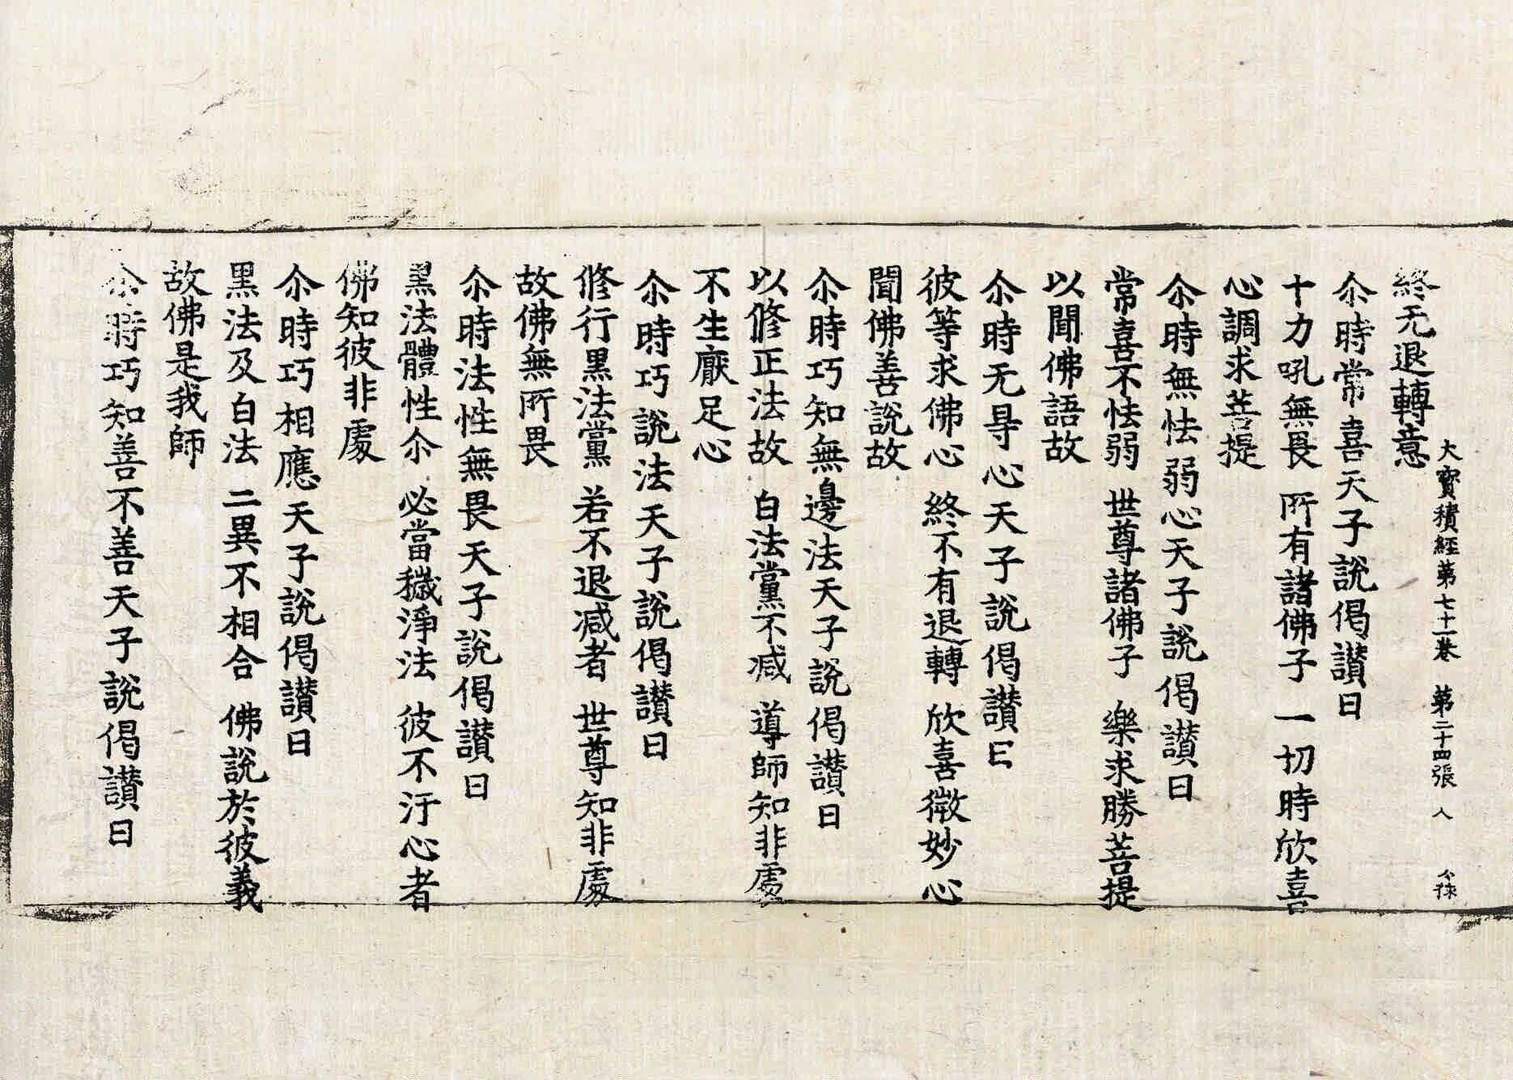 大寶積經第七十一卷　第二十四張　人
终无退轉意
尒時常喜天子說偈讃曰
十力吼無畏　所有諸佛子　一切時欣喜
心調求菩提
尒時無怯弱心天子說偈讃曰
常喜不怯弱　世尊諸佛子　樂求勝菩提
以聞佛語故
尒時无导心天子說偈讃曰
彼等求佛心　終不有退轉　欣喜微妙心
聞佛善說故
尒時巧知無邊法天子說偈讃曰
以修正法故　白法黨不减　導師知非處
不生厭足心
尒時巧說法天子說偈讃曰
修行黑法黨　若不退减者　世尊知非處
故佛無所畏
尒時法性無畏天子說偈讃曰
黑法體性尒　必當穢淨法　彼不汙心者
佛知彼非處
尒時巧相應天子說偈讃曰
黑法及白法　二異不相合　佛說於彼義
故佛是我師
尒時巧知善不善天子說偈讃曰